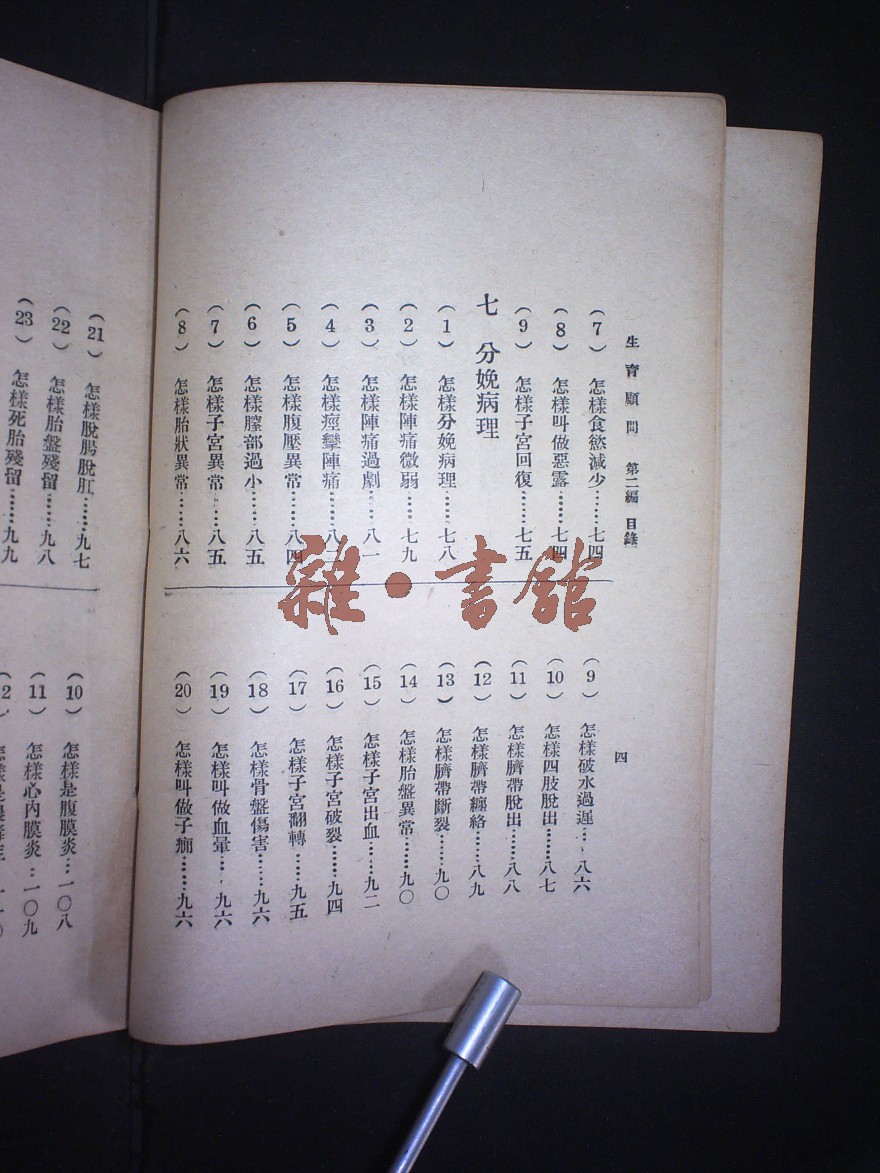 生育顧問　第二編　目錄
四
（7）　怎樣食慾減少……七四
（8）　怎樣叫做惡露……七四
（9）　怎樣子宮回復……七五
七　分娩病理
（1）　怎樣分娩病理……七八
（2）　怎樣陣痛微弱……七九
（3）　怎樣陣痛過劇……八一
（4）　怎樣痙攣陣痛……八二
（5）　怎樣腹壓異常……八四
（6）　怎樣膣部過小……八五
（7）　怎樣子宮異常……八五
（8）　怎樣胎狀異常……八六
（9）　怎樣破水過遲……八六
（10）　怎樣四肢脫出……八七
（11）　怎樣臍帶脫出……八八
（12）　怎樣臍帶纏絡……八九
（13）　怎樣臍帶斷裂……九〇
（14）　怎樣胎盤異常……九〇
（15）　怎樣子宮出血……九二
（16）　怎樣子宮破裂……九四
（17）　怎樣子宮翻轉……九五
（18）　怎樣骨盤傷害……九六
（19）　怎樣叫做血暈……九六
（20）　怎樣叫做子癇……九六
（21）　怎樣脫腸脫肛……九七
（22）　怎樣胎盤殘留……九八
（23）　怎樣死胎殘留……九九
（10）　怎樣是腹膜炎…一〇八
（11）　怎樣心內膜炎…一〇九
雜·書館